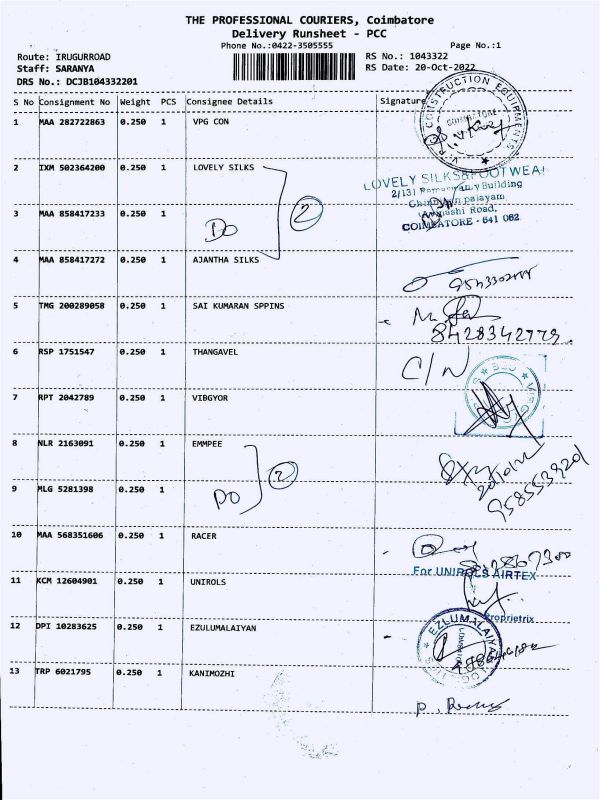 THE PROFESSIONAL COURIERS, Coimbatore
Delivery Runsheet - PCC
Phone No.:0422-3505555 Page No.:1
Route: IRUGURROAD RS No.: 1043322
Staff: SARANYA RS Date: 20-Oct-2022
DRS No.: DCJB104332201
S No Consignment No Weight PCS Consignee Details Signature
1 MAA 282722863 0.250 1 VPG CON
CONSTRUCTION EQUIPMENTS
COIMBATORE
2 IXM 502364200 0.250 1 LOVELY SILKS
LOVELY SILKS & FOOTWEAR
2/131 Building
palayam,
Road,
COIMBATORE - 641 062
3 MAA 858417233 0.250 1
DO 2
4 MAA 858417272 0.250 1 AJANTHA SILKS
5 TMG 200289058 0.250 1 SAI KUMARAN SPPINS
8428342779
6 RSP 1751547 0.250 1 THANGAVEL
C/N
7 RPT 2042789 0.250 1 VIBGYOR
8 NLR 2163091 0.250 1 EMMPEE
9 MLG 5281398 0.250 1
DO 2
10 MAA 568351606 0.250 1 RACER
For UNIROLS AIRTEX
11 KCM 12604901 0.250 1 UNIROLS
Proprietrix
12 DPI 10283625 0.250 1 EZULUMALAIYAN
EZLUMALAIYAN
13 TRP 6021795 0.250 1 KANIMOZHI